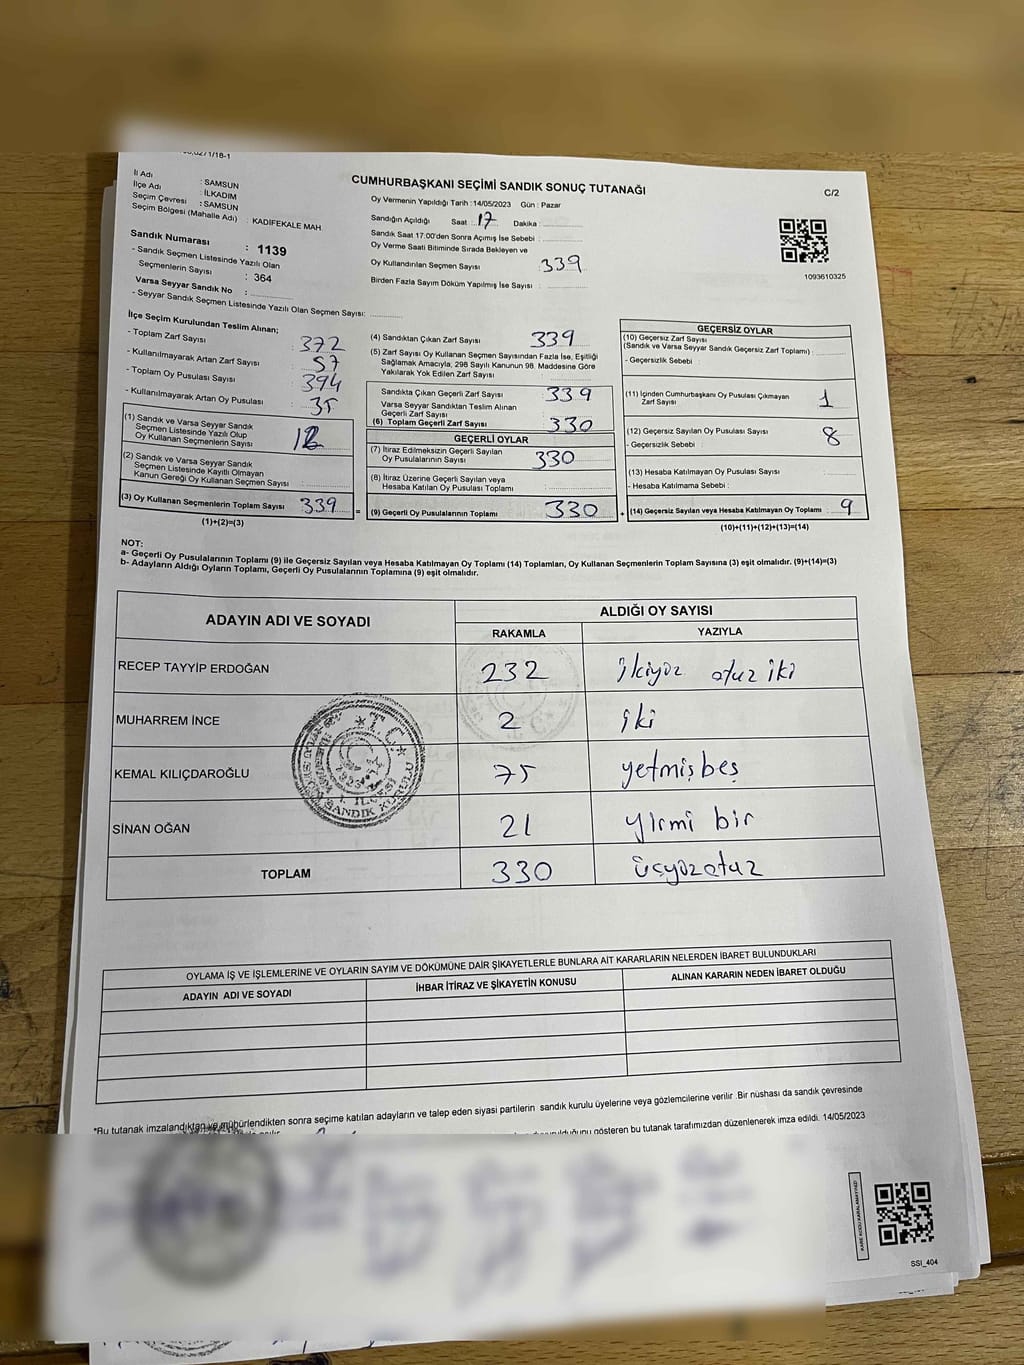 C/2
CUMHURBAŞKANI SEÇİMİ SANDIK SONUÇ TUTANAĞI
İl Adı : SAMSUN
İlçe Adı : İLKADIM
Seçim Çevresi : SAMSUN
Seçim Bölgesi (Mahalle Adı) : KADIFEKALE MAH
Sandık Numarası : 1139
- Sandık Seçmen Listesinde Yazılı Olan
Seçmenlerin Sayısı : 364
Varsa Seyyar Sandık No :
- Seyyar Sandık Seçmen Listesinde Yazılı Olan Seçmen Sayısı:
Oy Vermenin Yapıldığı Tarih :14/05/2023 Gün : Pazar
Sandığın Açıldığı Saat : 17 Dakika :
Sandık Saat 17:00'den Sonra Açımış İse Sebebi :
Oy Verme Saati Bitiminde Sırada Bekleyen ve
Oy Kullandırılan Seçmen Sayısı : 339
Birden Fazla Sayım Döküm Yapılmış İse Sayısı :
1093610325
İlçe Seçim Kurulundan Teslim Alınan;
- Toplam Zarf Sayısı : 372
- Kullanılmayarak Artan Zarf Sayısı : 57
- Toplam Oy Pusulası Sayısı : 394
- Kullanılmayarak Artan Oy Pusulası : 35
(1) Sandık ve Varsa Seyyar Sandık
Seçmen Listesinde Yazılı Olup
Oy Kullanan Seçmenlerin Sayısı :
(2) Sandık ve Varsa Seyyar Sandık
Seçmen Listesinde Kayıtlı Olmayan
Kanun Gereği Oy Kullanan Seçmen Sayısı :
(3) Oy Kullanan Seçmenlerin Toplam Sayısı : 339
(1)+(2)=(3)
(4) Sandıktan Çıkan Zarf Sayısı : 339
(5) Zarf Sayısı Oy Kullanan Seçmen Sayısından Fazla İse, Eşitliği
Sağlamak Amacıyla, 298 Sayılı Kanunun 98. Maddesine Göre
Yakılarak Yok Edilen Zarf Sayısı :
Sandıkta Çıkan Geçerli Zarf Sayısı : 339
Varsa Seyyar Sandıktan Teslim Alınan
Geçerli Zarf Sayısı :
(6) Toplam Geçerli Zarf Sayısı : 330
GEÇERLİ OYLAR
(7) İtiraz Edilmeksizin Geçerli Sayılan
Oy Pusulalarının Sayısı : 330
(8) İtiraz Üzerine Geçerli Sayılan veya
Hesaba Katılan Oy Pusulası Toplamı :
= (9) Geçerli Oy Pusulalarının Toplamı : 330
GEÇERSİZ OYLAR
(10) Geçersiz Zarf Sayısı
(Sandık ve Varsa Seyyar Sandık Geçersiz Zarf Toplamı) :
- Geçersizlik Sebebi :
(11) İçinden Cumhurbaşkanı Oy Pusulası Çıkmayan
Zarf Sayısı : 1
(12) Geçersiz Sayılan Oy Pusulası Sayısı : 8
- Geçersizlik Sebebi :
(13) Hesaba Katılmayan Oy Pusulası Sayısı :
- Hesaba Katılmama Sebebi :
+ (14) Geçersiz Sayılan veya Hesaba Katılmayan Oy Toplamı : 9
(10)+(11)+(12)+(13)=(14)
NOT:
a- Geçerli Oy Pusulalarının Toplamı (9) ile Geçersiz Sayılan veya Hesaba Katılmayan Oy Toplamı (14) Toplamları, Oy Kullanan Seçmenlerin Toplam Sayısına (3) eşit olmalıdır. (9)+(14)=(3)
b- Adayların Aldığı Oyların Toplamı, Geçerli Oy Pusulalarının Toplamına (9) eşit olmalıdır.
ADAYIN ADI VE SOYADI ALDIĞI OY SAYISI
RAKAMLA YAZIYLA
RECEP TAYYİP ERDOĞAN 232 ikiyüz otuz iki
MUHARREM İNCE 2 iki
KEMAL KILIÇDAROĞLU 75 yetmişbeş
SİNAN OĞAN 21 yirmi bir
TOPLAM 330 üçyüzotuz
T.C.
SANDIK KURULU
OYLAMA İŞ VE İŞLEMLERİNE VE OYLARIN SAYIM VE DÖKÜMÜNE DAİR ŞİKAYETLERLE BUNLARA AİT KARARLARIN NELERDEN İBARET BULUNDUKLARI
ADAYIN ADI VE SOYADI İHBAR İTİRAZ VE ŞİKAYETİN KONUSU ALINAN KARARIN NEDEN İBARET OLDUĞU
*Bu tutanak imzalandıktan ve mühürlendikten sonra seçime katılan adayların ve talep eden siyasi partilerin sandık kurulu üyelerine veya gözlemcilerine verilir .Bir nüshası da sandık çevresinde
gösteren bu tutanak tarafımızdan düzenlenerek imza edildi. 14/05/2023
KARE KODU KARALAMAYINIZ!
SSI_404